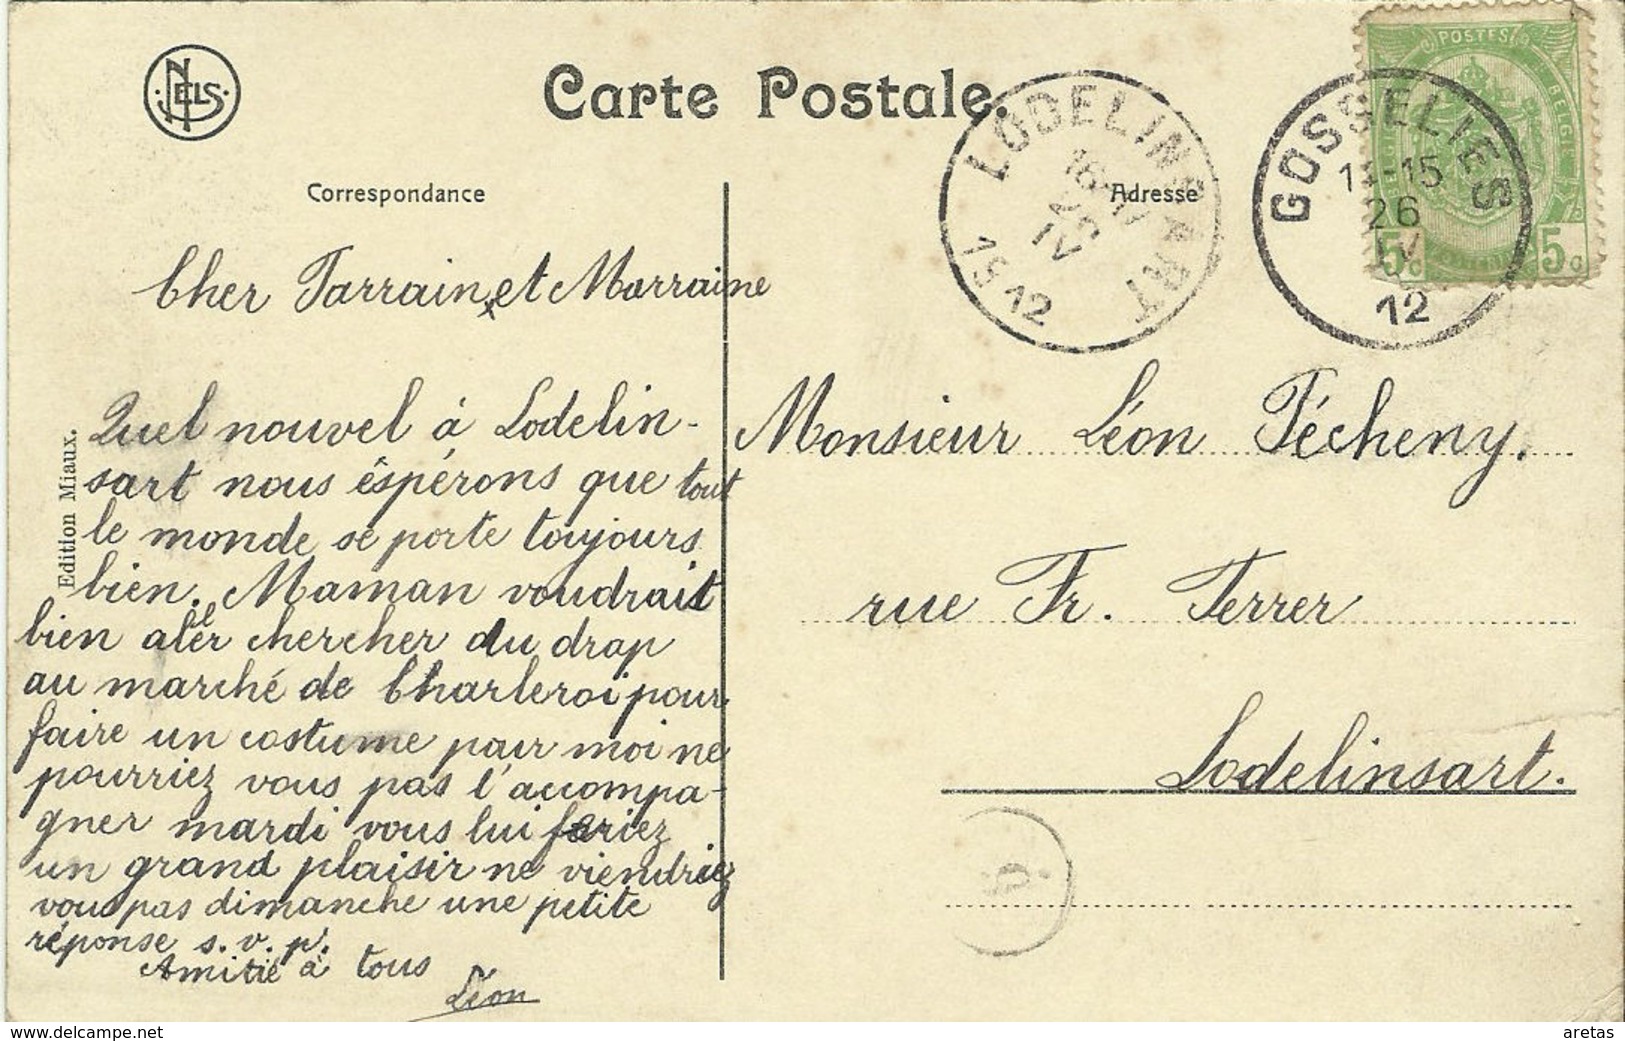 NELS
Carte Postale.
POSTES
BELGIQUE
5c
5c
LODELINSART
16-17
IV
1912
GOSSELIES
14-15
26
IV
12
Correspondance
Adresse
Cher Parrain, et Marraine
Quel nouvel à Lodelin-
sart nous éspérons que tout
le monde se porte toujours
bien. Maman voudrait
bien aller chercher du drap
au marché de Charleroi pour
faire un costume pour moi ne
pourriez vous pas l'accompa-
gner mardi vous lui feriez
un grand plaisir ne viendriez
vous pas dimanche une petite
réponse s.v.p.
Amitié à tous
Léon
Edition Miaux.
Monsieur Léon Pécheny.
rue Fr. Ferrer
Lodelinsart.
www.delcampe.net
aretas